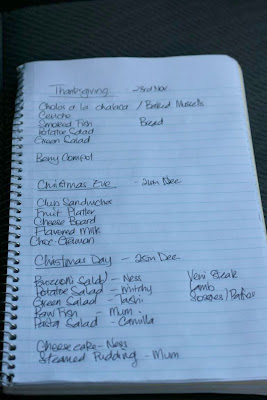 Thanksgiving - 23rd Nov.
Choros a la chalaca / Baked Mussells
Ceviche
Smoked Fish Bread
Potatoe Salad
Green Salad
Berry Compot
Christmas Eve - 24th Dec
Club Sandwiches
Fruit Platter
Cheese Board
Flavored Milk
Choc
Christmas Day - 25th Dec
Salad - Ness Veni Steak
Potatoe Salad - Mitchy Lamb
Green Salad - Tashi
Raw Fish - Mum
Pasta Salad - Camilla
Cheesecake - Ness
Steamed Pudding - Mum